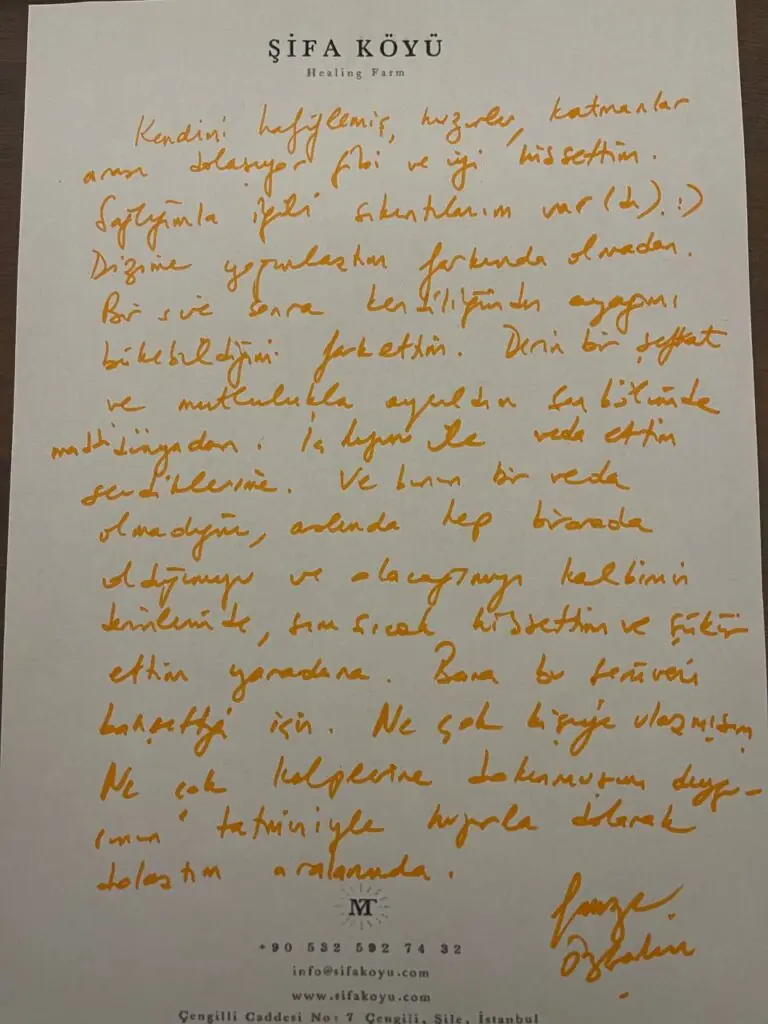 ŞİFA KÖYÜ
Healing Farm
Kendimi hafiflemiş, huzurlu, katmanlar
arası dolaşıyor gibi ve iyi hissettim.
Sağlığımla ilgili sıkıntılarım var(dı). :)
Dizime yoğunlaştım farkında olmadan.
Bir süre sonra kendiliğinden ayağımı
bükebildiğimi farkettim. Derin bir şefkat
ve mutlulukla ayrıldım son bölümde
maddi dünyadan. İç huzuru ile veda ettim
sevdiklerime. Ve bunun bir veda
olmadığını, aslında hep birarada
olduğumuzu ve olacağımızı kalbimin
derinlerinde, sım sıcak hissettim ve şükür
ettim yaradana. Bana bu serüveni
bahşettiği için. Ne çok kişiye ulaşmışım
Ne çok kalplerine dokunmuşum duygu-
sunun tatminiyle huzurla dolarak
dolaştım aralarında.
MT
+90 532 592 74 32
info@sifakoyu.com
www.sifakoyu.com
Çengilli Caddesi No: 7 Çengili, Şile, İstanbul